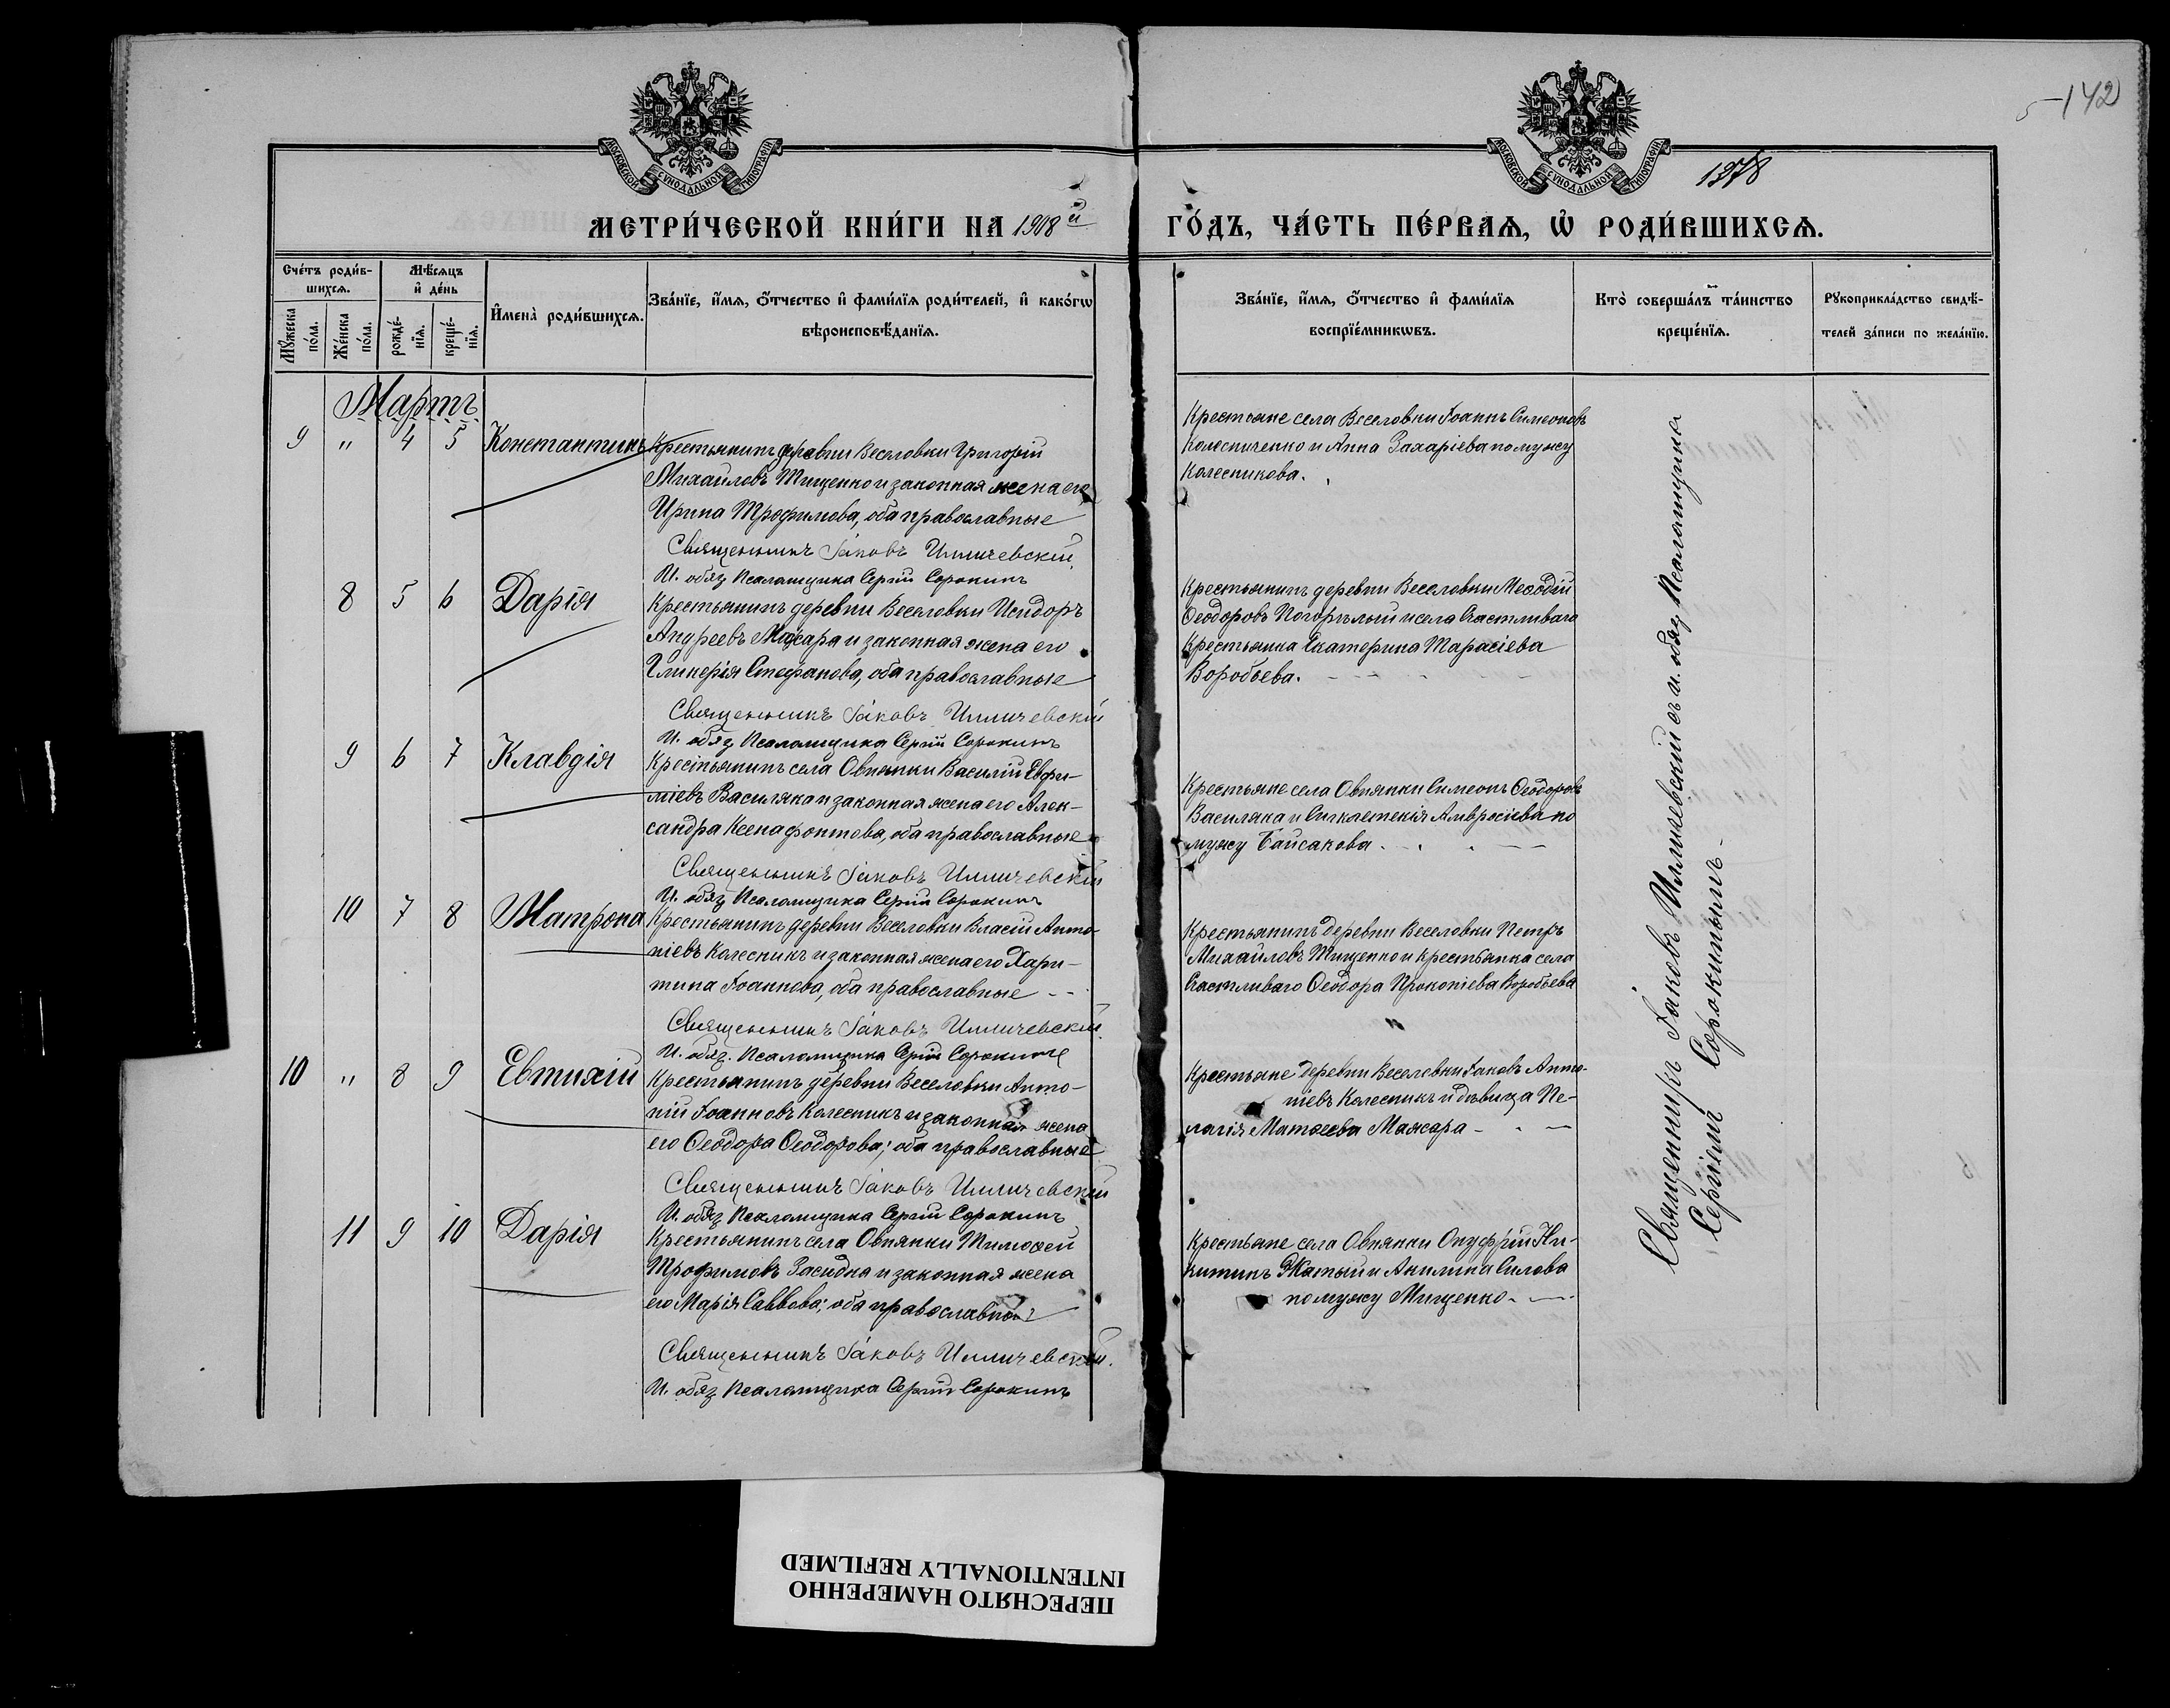 142
1378
МОСКОВСКОЙ СѴНОДАЛЬНОЙ ТИПОГРАФІИ
МОСКОВСКОЙ СѴНОДАЛЬНОЙ ТИПОГРАФІИ
МЕТРИ́ЧЕСКОЙ КНИ́ГИ НА 1908й ГО́ДЪ, ЧА́СТЬ ПЕ́РВАѦ, Ѡ҆ РОДИ́ВШИХСѦ.
Сче́тъ роди́вшихсѧ.
Мꙋ́жеска по́ла.
Же́нска по́ла.
Мѣ́сѧцъ и҆ де́нь
рожде́нїѧ.
креще́нїѧ.
И҆мена̀ роди́вшихсѧ.
Зва́нїе, и҆́мѧ, ѻ҆́тчество и҆ фами́лїѧ роди́телей, и҆ како́гѡ
вѣроисповѣ́данїѧ.
Зва́нїе, и҆́мѧ, ѻ҆́тчество и҆ фами́лїѧ
воспрїе́мникѡвъ.
Кто̀ соверша́лъ та́инство
креще́нїѧ.
Рꙋкоприкла́дство свидѣ́-
телей за́писи по жела́нїю.
Мартъ
9 " 4 5 Константинъ
Крестьянинъ деревни Веселовки Григорій
Михайловъ Тищенко и законная жена его
Ирина Трофимова, оба православные
Священникъ Іаковъ Илличевскій
И. обяз Псаломщика Сергій Сорокинъ
Крестьяне села Веселовки Іоаннъ Симеоновъ
Колесниченко и Анна Захаріева по мужу
Колесникова.
8 5 6 Дарія
Крестьянинъ деревни Веселовки Исидоръ
Андреевъ Мажара и законная жена его
Гликерія Стефанова, оба православные
Священникъ Іаковъ Илличевскій
И. обяз Псаломщика Сергій Сорокинъ
Крестьянинъ деревни Веселовки Меѳодій
Ѳеодоровъ Погорѣлый и села Счастливаго
крестьянка Екатерина Тарасіева
Воробьева.
9 6 7 Клавдія
Крестьянинъ села Овнянки Василій Евфи-
міевъ Василяка и законная жена его Алек-
сандра Ксенофонтова, оба православные
Священникъ Іаковъ Илличевскій
И. обяз Псаломщика Сергій Сорокинъ
Крестьяне села Овнянки Симеонъ Ѳеодоровъ
Василяка и Амвросіева по
мужу Байсакова.
10 7 8 Матрона
Крестьянинъ деревни Веселовки Власій Анто-
ніевъ Колесникъ и законная жена его Хари-
тина Іоаннова, оба православные
Священникъ Іаковъ Илличевскій
И. обяз. Псаломщика Сергій Сорокинъ
Крестьянинъ деревни Веселовки Петръ
Михайловъ Тищенко и крестьянка села
Счастливаго Ѳеодора Прокопіева Воробьева
10 " 8 9 Евтихій
Крестьянинъ деревни Веселовки Анто-
ній Іоанновъ Колесникъ и законная жена
его Ѳеодора Ѳеодорова; оба православные
Священникъ Іаковъ Илличевскій
И. обяз Псаломщика Сергій Сорокинъ
Крестьяне деревни Веселовки Іаковъ Анто-
ніевъ Колесникъ и дѣвица Пе-
лагія Матѳеева Мажара
11 9 10 Дарія
Крестьянинъ села Овнянки Тимоѳей
Трофимовъ Засидка и законная жена
его Марія Саввова; оба православные
Священникъ Іаковъ Илличевскій.
И. обяз Псаломщика Сергій Сорокинъ
Крестьяне села Овнянки Онуфрій Ни-
китинъ и Акилина Силова
по мужу Мищенко.
Священникъ Іаковъ Илличевскій съ и. обяз Псаломщика
Сергіемъ Сорокинымъ
ПЕРЕСНЯТО НАМЕРЕННО
INTENTIONALLY REFILMED